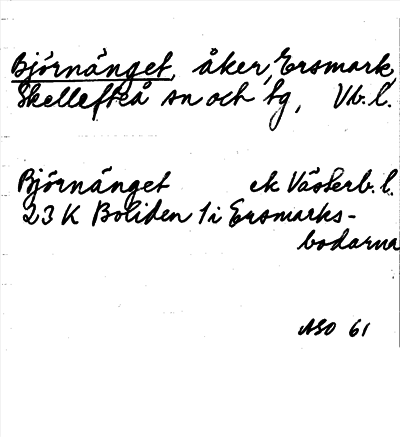 Björnänget, åker, Ersmark,
Skellefteå sn och tg, Vb. l.
Björnänget ek Västerb. l.
23 K Boliden 1 i Ersmarks-
bodarna
ASO 61